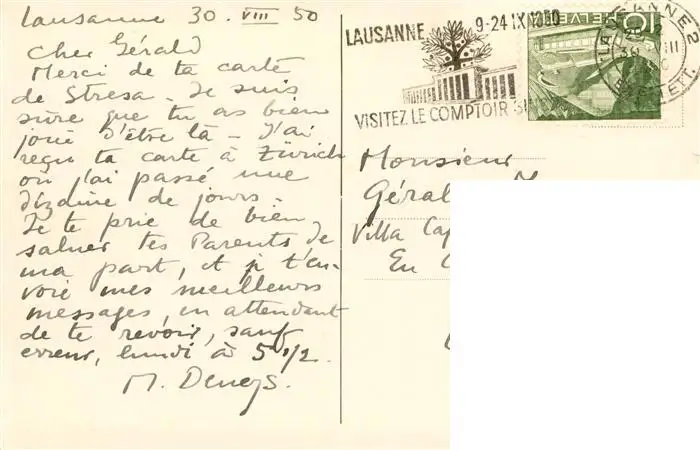 Lausanne 30. VIII 50
Cher Gérald
Merci de ta carte
de Stresa. Je suis
sûre que tu as bien
joui d'être là - J'ai
reçu ta carte à Zürich
où j'ai passé une
dizaine de jours.
Je te prie de bien
saluer tes Parents de
ma part, et je t'en-
voie mes meilleurs
messages, en attendant
de te revoir, sauf
erreur, lundi à 5 1/2.
M. Deneys.
LAUSANNE 9-24 IX 1950
VISITEZ LE COMPTOIR SUI
HELVETIA
10
LAUSANNE 2
Monsieur
Géral
Villa Cap
En